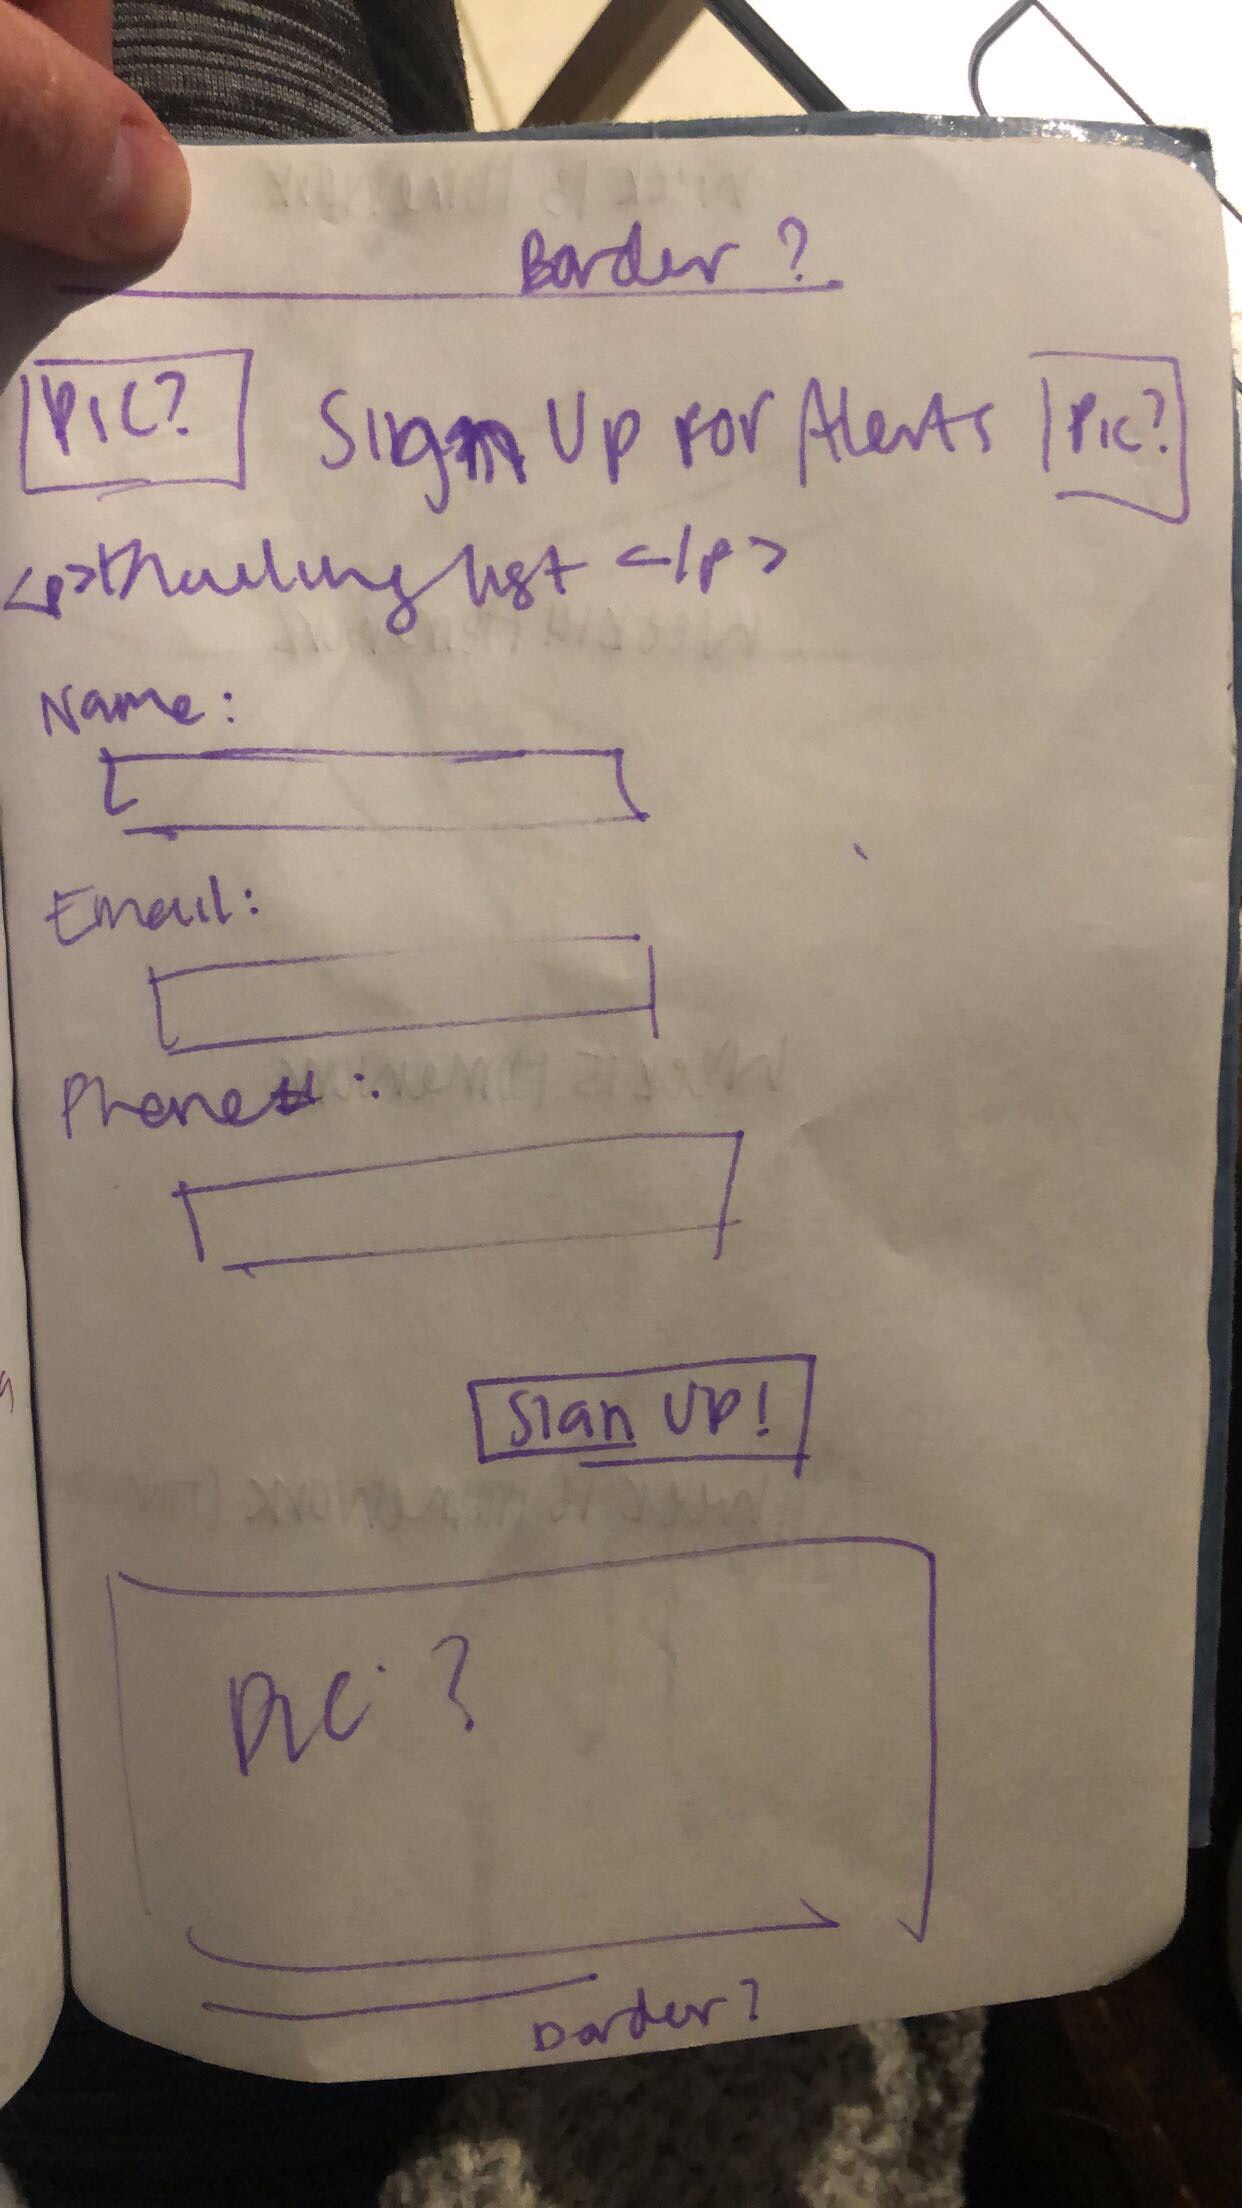 Border?
PIC? Sign Up For Alerts Pic?
<p> mailing list </p>
Name:
Email:
Phone#:
Sign UP!
Pic?
Border?